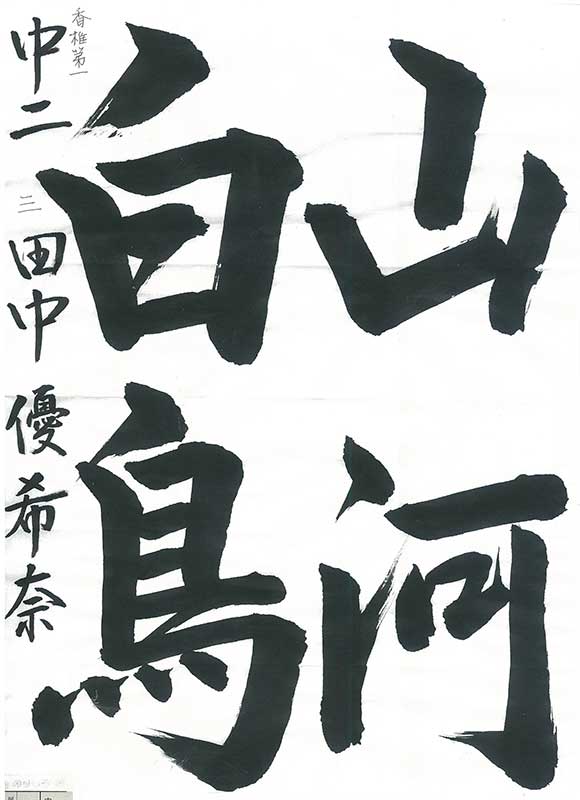 山河
白鳥
香椎第一
中二 三 田中優希奈